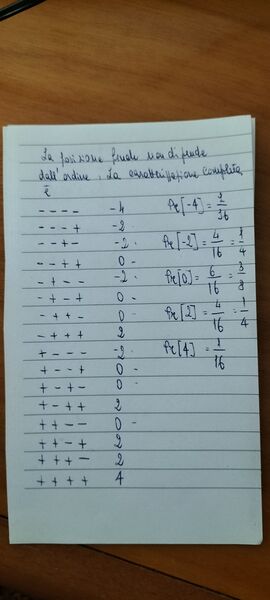 La posizione finale non dipende
dall'ordine. La caratterizzazione completa
è
- - - - -4 Pr[-4] = 1/16
- - - + -2
- - + - -2 Pr[-2] = 4/16 = 1/4
- - + + 0
- + - - -2 Pr[0] = 6/16 = 3/8
- + - + 0
- + + - 0 Pr[2] = 4/16 = 1/4
- + + + 2
+ - - - -2 Pr[4] = 1/16
+ - - + 0
+ - + - 0
+ - + + 2
+ + - - 0
+ + - + 2
+ + + - 2
+ + + + 4